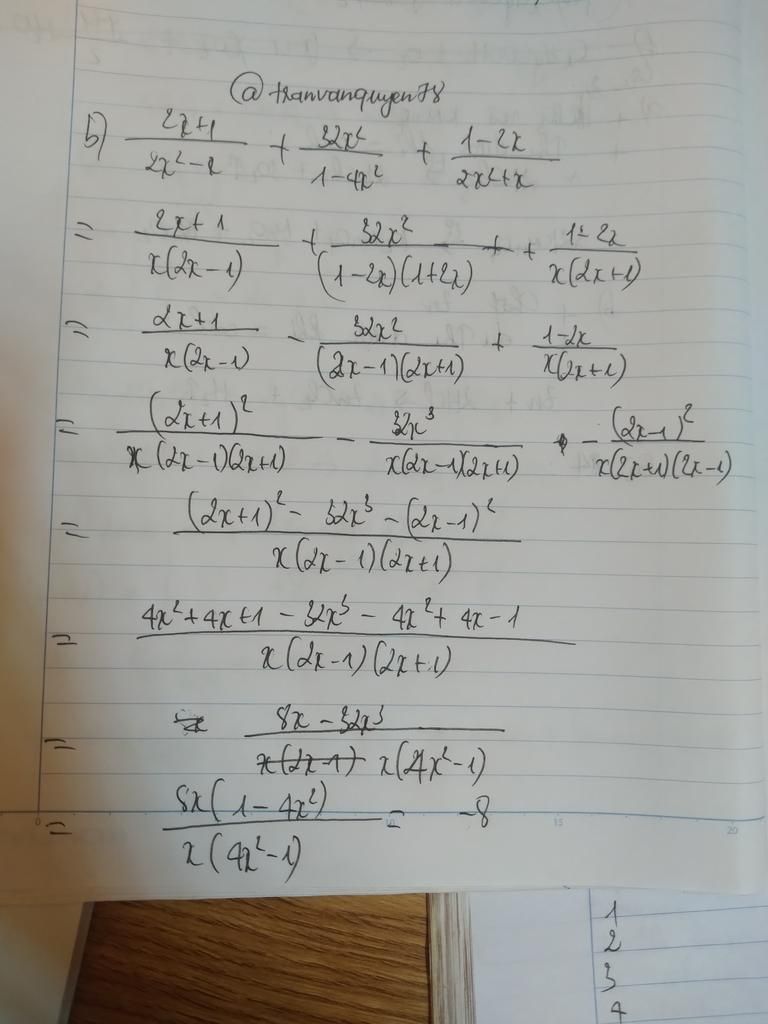 @tranvanquyen78
b) \frac{2x+1}{2x^2-x} + \frac{32x^2}{1-4x^2} + \frac{1-2x}{2x^2+x}
= \frac{2x+1}{x(2x-1)} + \frac{32x^2}{(1-2x)(1+2x)} + + \frac{1-2x}{x(2x+1)}
= \frac{2x+1}{x(2x-1)} - \frac{32x^2}{(2x-1)(2x+1)} + \frac{1-2x}{x(2x+1)}
= \frac{(2x+1)^2}{x(2x-1)(2x+1)} - \frac{32x^3}{x(2x-1)(2x+1)} - \frac{(2x-1)^2}{x(2x+1)(2x-1)}
= \frac{(2x+1)^2 - 32x^3 - (2x-1)^2}{x(2x-1)(2x+1)}
= \frac{4x^2+4x+1 - 32x^3 - 4x^2 + 4x - 1}{x(2x-1)(2x+1)}
= \frac{8x - 32x^3}{x(4x^2-1)}
= \frac{8x(1-4x^2)}{x(4x^2-1)} = -8
10 15 20
1
2
3
4